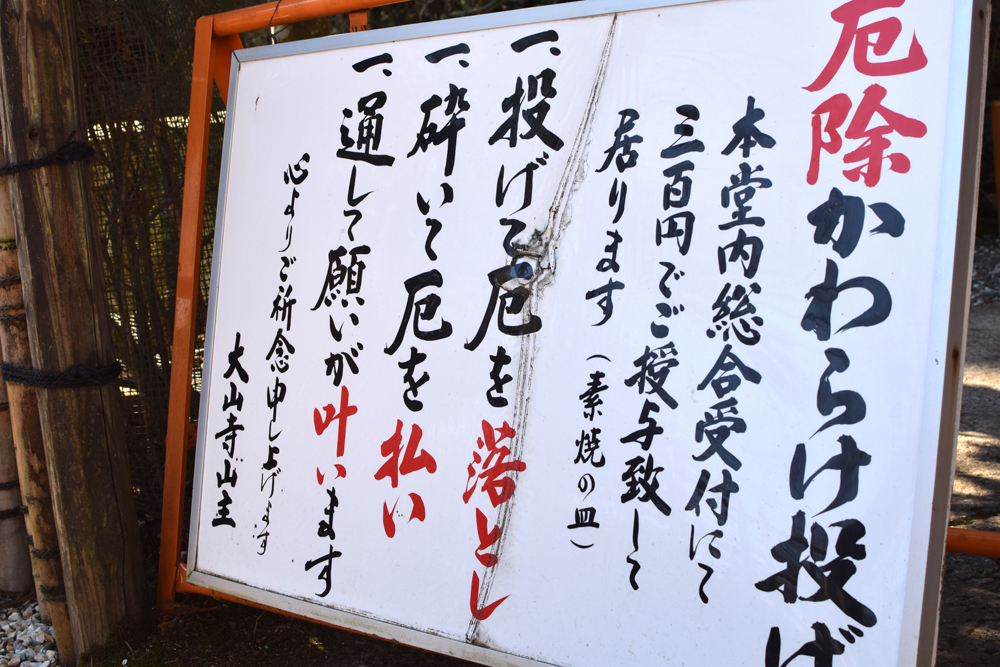 厄除かわらけ投げ
本堂内総合受付にて
三百円でご授与致して
居ります（素焼の皿）
一、投げて厄を落とし
一、砕いて厄を払い
一、通して願いが叶います
心よりご祈念申し上げます
大山寺山主